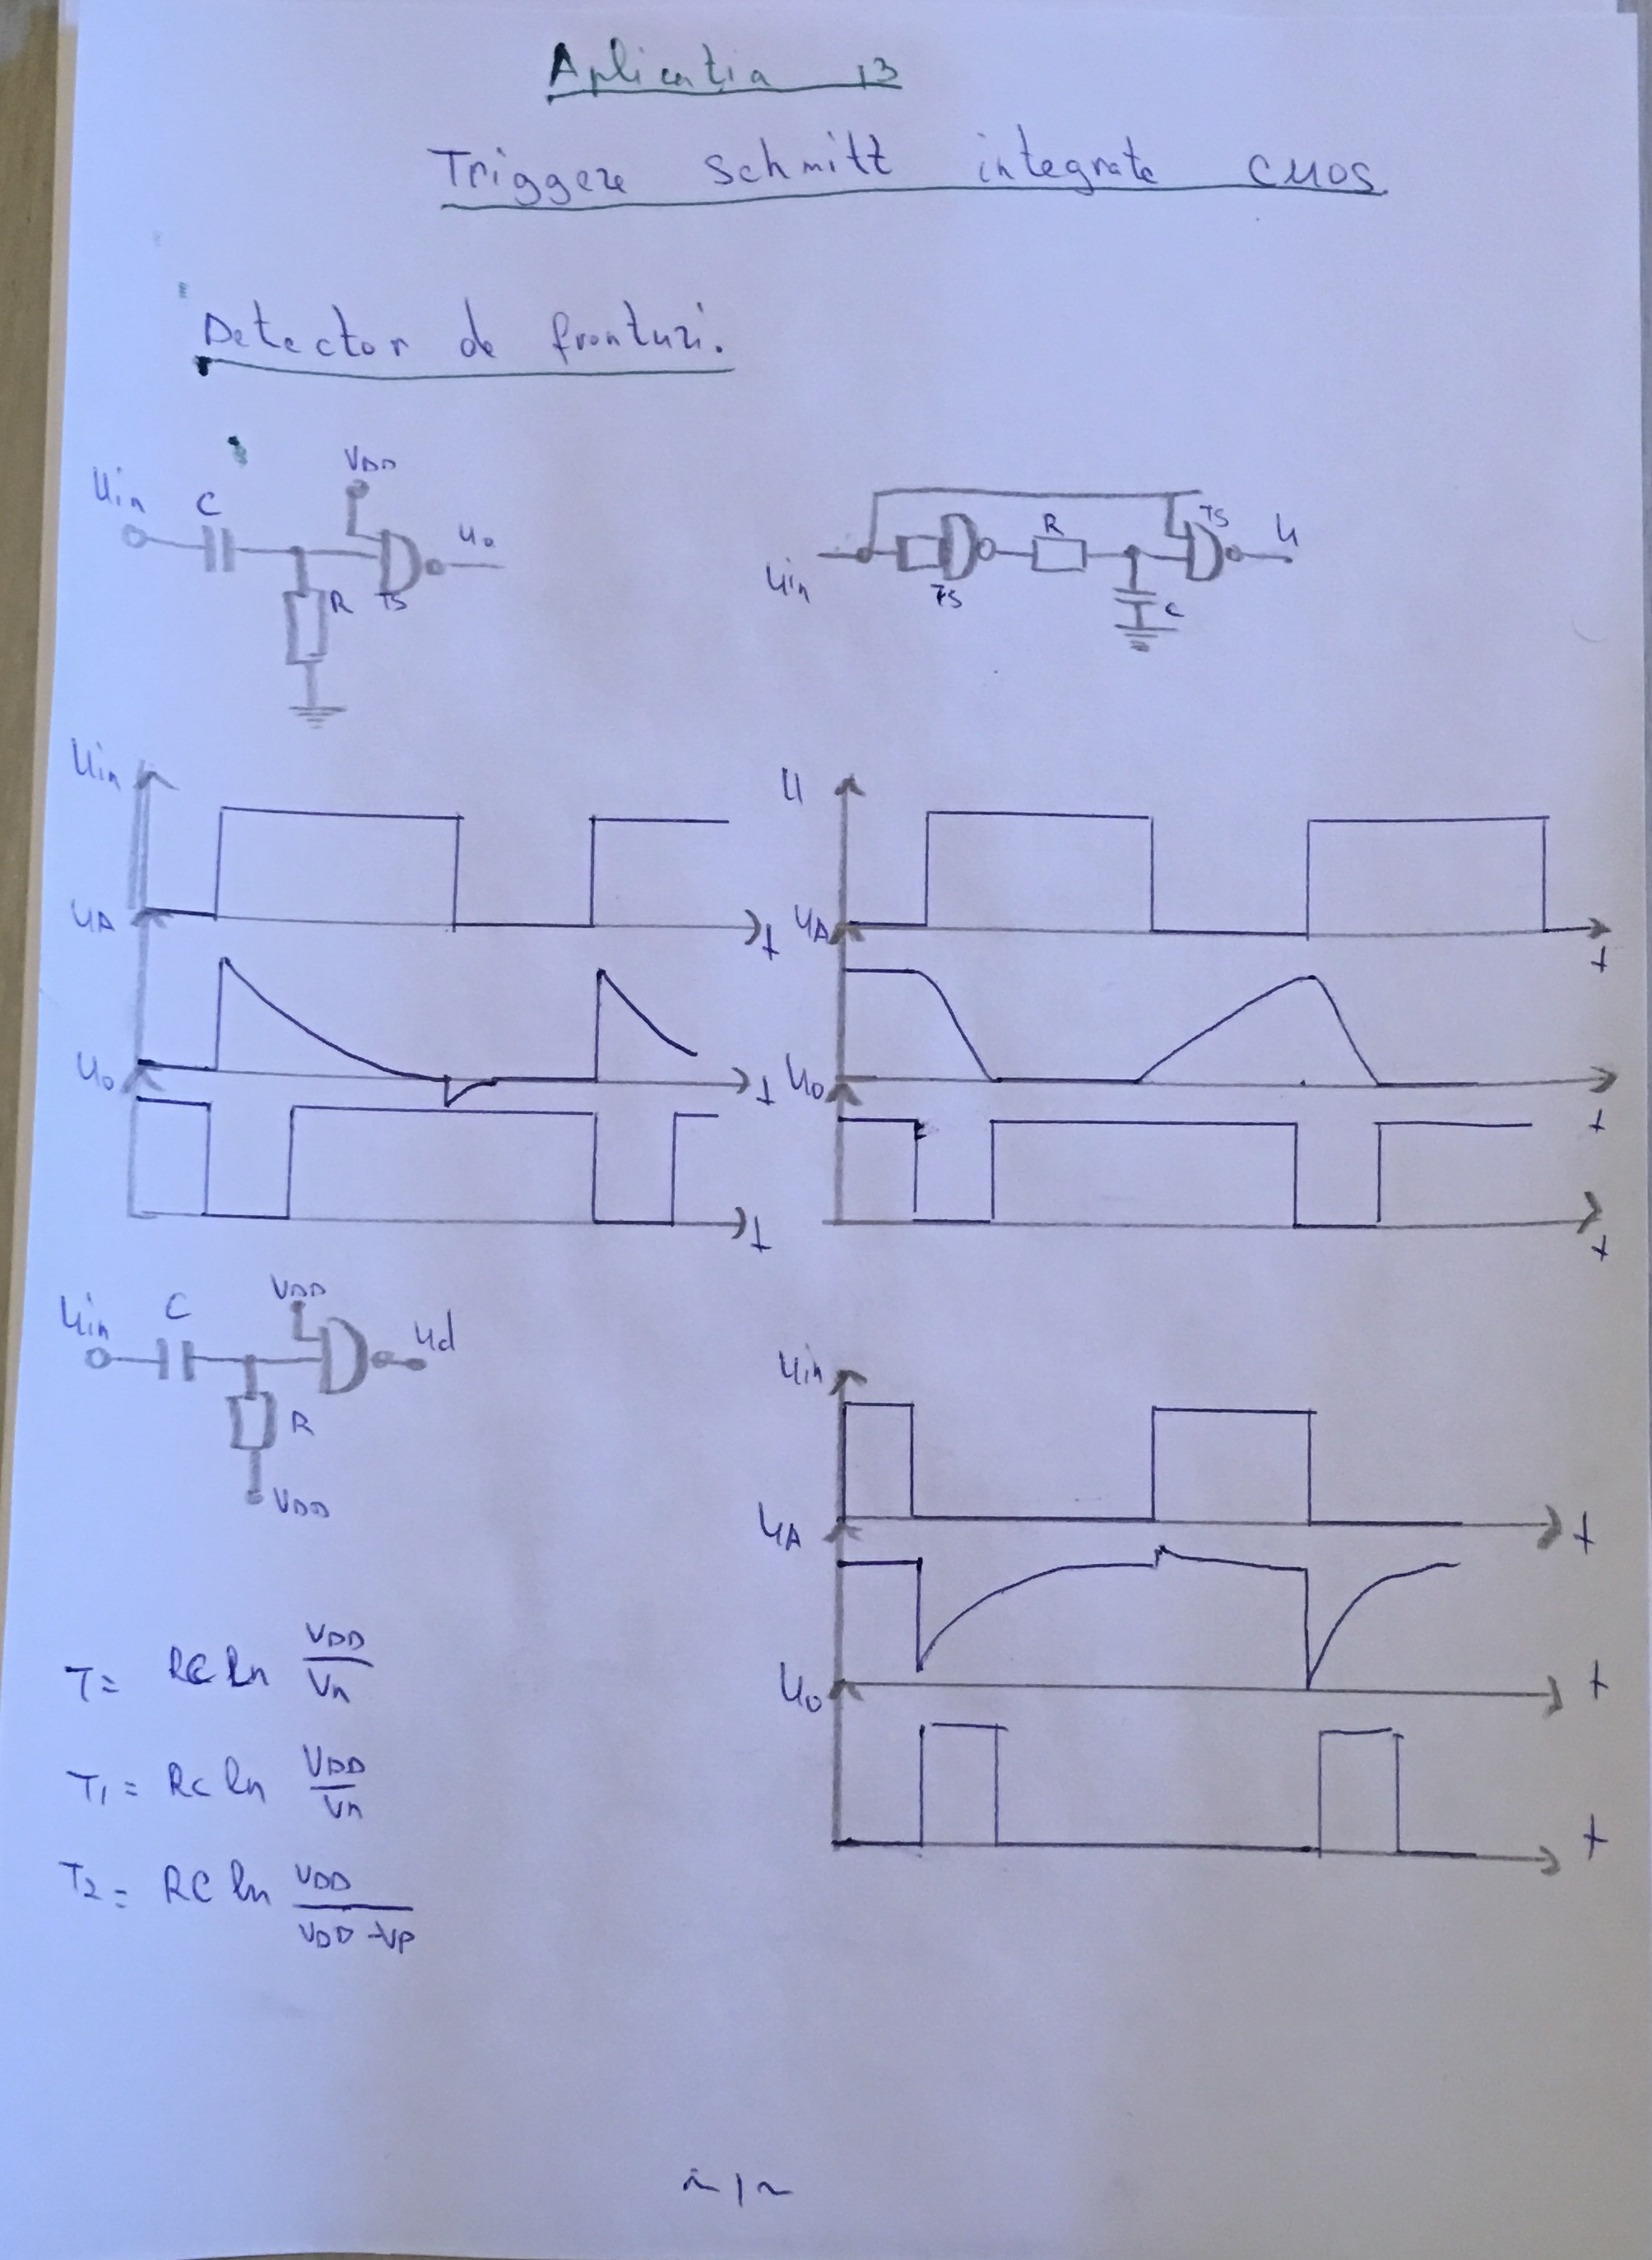 Aplicatia 13
Triggere Schmitt integrate CMOS
Detector de fronturi.
Uin C VDD Uo
R TS
Uin TS R C TS U
Uin
UA t
Uo t
t
U
UA t
Uo t
t
Uin C VDD Ud
R
VDD
Uin
UA t
Uo t
t
T= RC ln VDD/Vn
T1= RC ln VDD/Vn
T2= RC ln VDD/VDD-VP